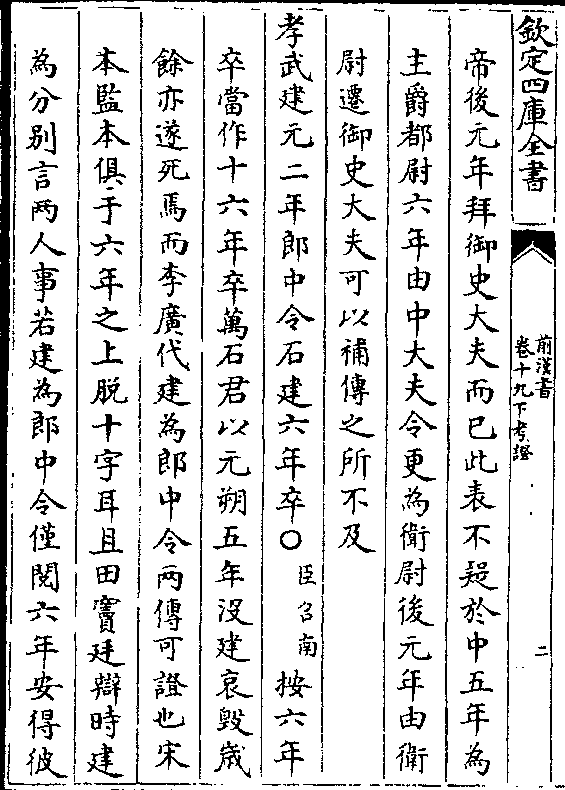 欽定四庫全書
前漢書
卷十九下考證
二
帝後元年拜御史大夫而已此表不疑於中五年為
主爵都尉六年由中大夫令更為衛尉後元年由衛
尉遷御史大夫可以補傳之所不及
孝武建元二年郎中令石建六年卒○臣召南按六年
卒當作十六年卒萬石君以元朔五年没建哀毀歲
餘亦遂死焉而李廣代建為郎中令兩傳可證也宋
本監本俱于六年之上脱十字耳且田竇廷辯時建
為分别言兩人事若建為郎中令僅閱六年安得彼